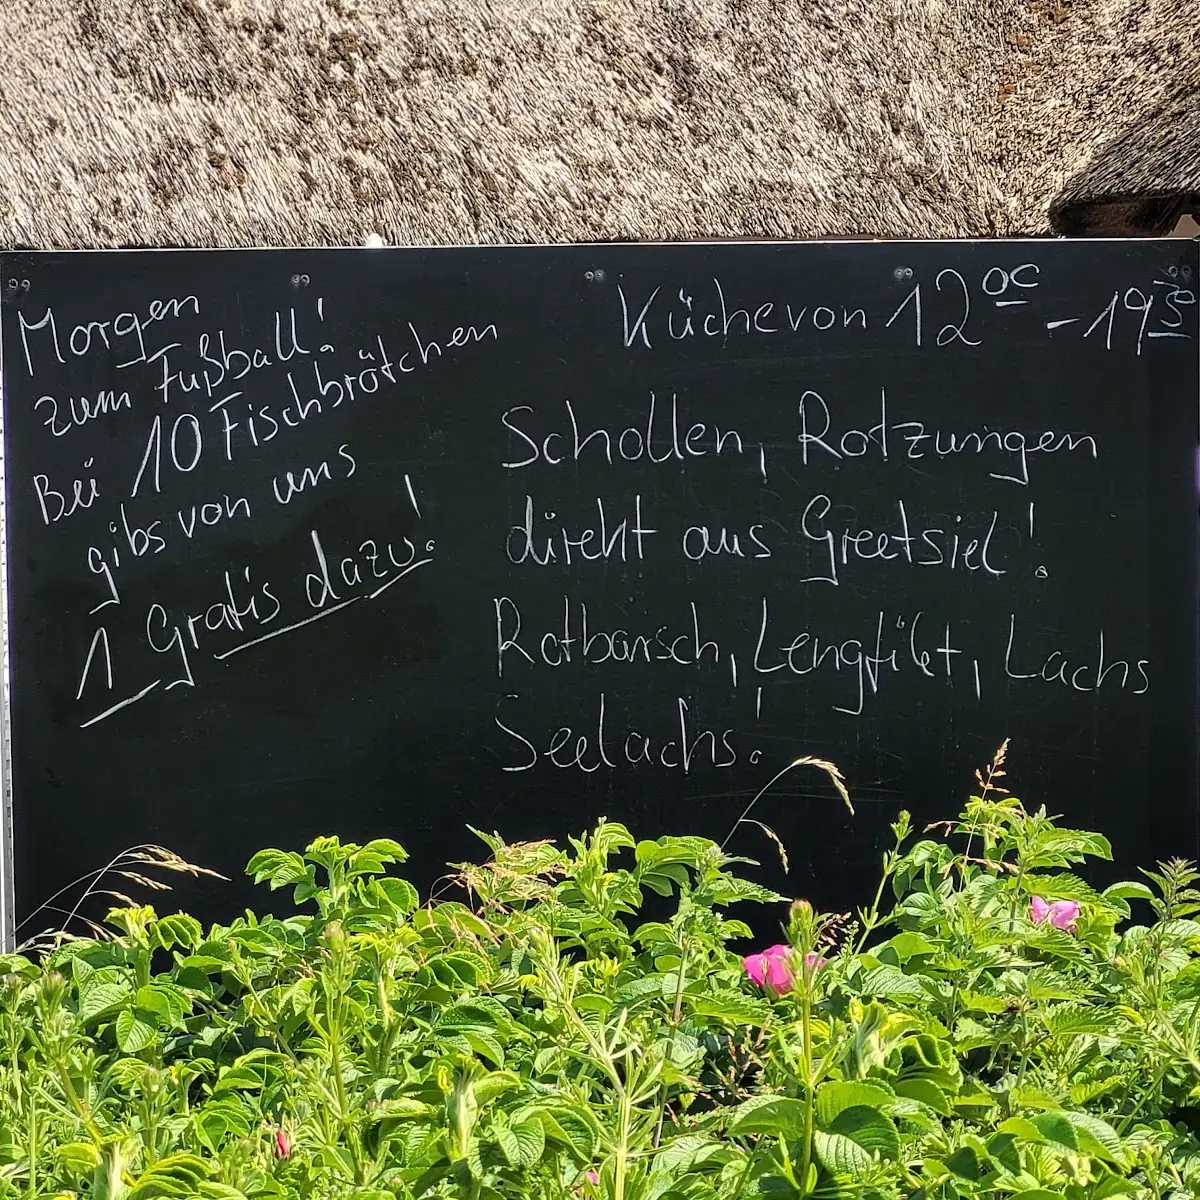 Morgen
zum Fußball!
Bei 10 Fischbrötchen
gibs von uns
1 Gratis dazu!
Küche von 12 00 - 19 30
Schollen, Rotzungen
direkt aus Greetsiel!
Rotbarsch, Lengfilet, Lachs
Seelachs!